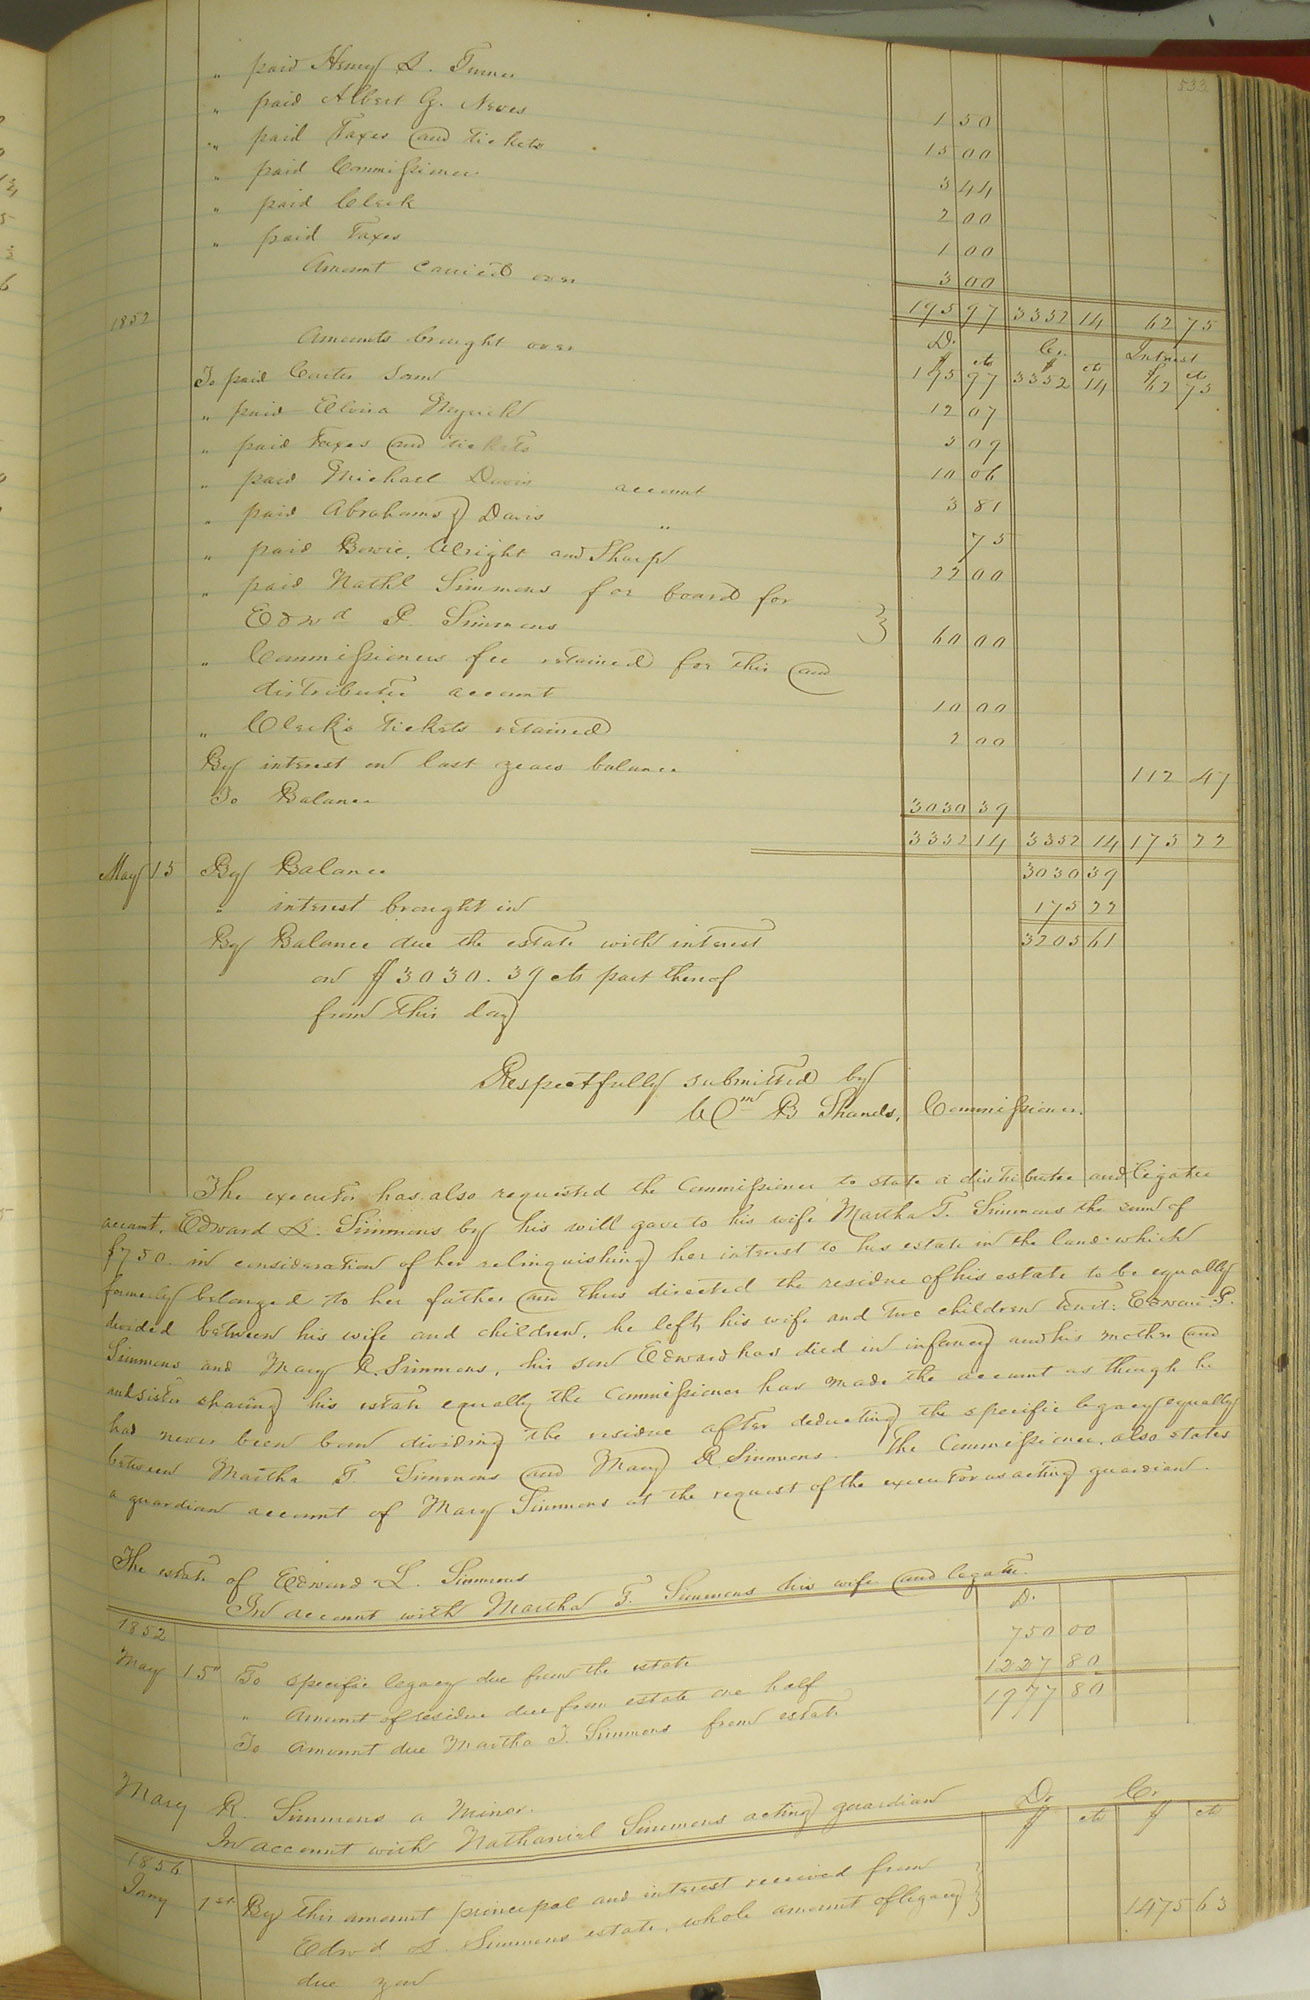 533
" paid Henry L. Turner 1 50
" paid Albert G. Neves 15 00
" paid Taxes and tickets 3 44
" paid Commissioner 2 00
" paid Clerk 1 00
" paid Taxes 3 00
Amount carried over 195 97 3352 14 62 75
1852 Dr. Cr. Intrest
$ cts $ cts $ cts
Amounts brought over 195 97 3352 14 62 75
To paid Curtis Land 12 07
" paid Elvira Myrick 5 09
" paid Taxes and tickets 10 06
" paid Michael Davis account 3 81
" paid Abrahams Davis " 75
" paid Bowie, Wright and Sharp 22 00
" paid Nathl Simmons for board for
Edwd P. Simmons 60 00
" Commissioners fee retained for this and
distributee account 10 00
" Clerk's tickets retained 2 00
By interest on last years balance 112 47
To Balance 3030 39
3352 14 3352 14 175 22
May 15 By Balance 3030 39
" interest brought in 175 22
By Balance due the estate with interest 3205 61
on $3030.39 cts part thereof
from this day
Respectfully submitted by
Wm B Shands, Commissioner.
The executor has also requested the Commissioner to state a distributee and legatee
account. Edward L. Simmons by his will gave to his wife Martha T. Simmons the sum of
$750. in consideration of her relinquishing her interest to his estate in the land which
formerly belonged to her father and thus directed the residue of his estate to be equally
divided between his wife and children, he left his wife and two children towit: Edward P.
Simmons and Mary R. Simmons, his son Edward has died in infancy and his mother and
and sister sharing his estate equally the Commissioner has made the account as though he
had never been born dividing the residue after deducting the specific legacy equally
between Martha T Simmons and Mary R Simmons. The Commissioner also states
a guardian account of Mary Simmons at the request of the executor as acting guardian.
The estate of Edward L. Simmons
In account with Martha T. Simmons his wife and legatee.
1852 Dr.
May 15 To specific legacy due from the estate 750 00
" Amount of residue due from estate one half 1227 80
To Amount due Martha T. Simmons from estate 1977 80
Mary R. Simmons a Minor.
In account with Nathaniel Simmons acting guardian Dr Cr.
$ cts $ cts
1856
Jany 1st By this amount principal and interest received from
Edwd L. Simmons estate, whole amount of legacy 1475 63
due